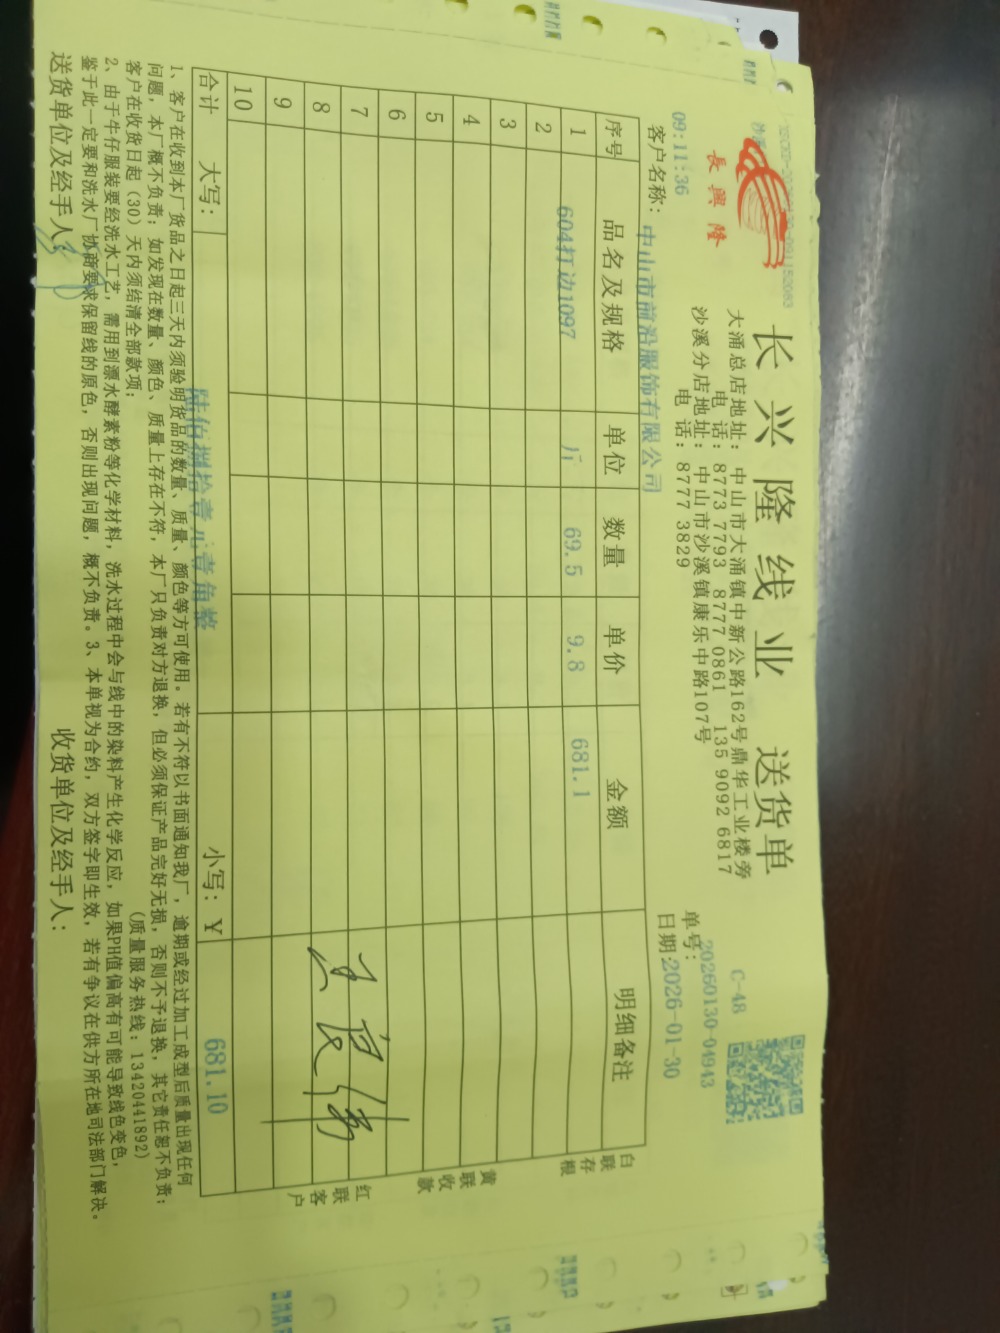 長興隆
长兴隆线业 送货单
C-48
大涌总店地址：中山市大涌镇中新公路162号鼎华工业楼旁
电 话：8773 7793 8777 0861 135 9092 6817
沙溪分店地址：中山市沙溪镇康乐中路107号
电 话：8777 3829
单号：20260130-04943
09:11:36
日期：2026-01-30
客户名称：中山市前沿服饰有限公司
序号 品名及规格 单位 数量 单价 金额 明细备注
1 604打边1097 斤 69.5 9.8 681.1
2
3
4
5
6
7
8
9
10
合计 大写：陆佰捌拾壹元壹角整 小写：¥ 681.10
白联存根
黄联收款
红联客户
1、客户在收到本厂货品之日起三天内须验明货品的数量、质量、颜色等方可使用。若有不符以书面通知我厂，逾期或经过加工成型后质量出现任何
问题，本厂概不负责；如发现在数量、颜色、质量上存在不符，本厂只负责对方退换，但必须保证产品完好无损，否则不予退换，其它责任恕不负责；
客户在收货日起（30）天内须结清全部款项；
(质量服务热线：13420441892)
2、由于牛仔服装要经洗水工艺，需用到漂水酵素粉等化学材料，洗水过程中会与线中的染料产生化学反应，如果PH值偏高有可能导致线色变色，
鉴于此一定要和洗水厂协商要求保留线的原色，否则出现问题，概不负责。3、本单视为合约，双方签字即生效，若有争议在供方所在地司法部门解决。
送货单位及经手人：
收货单位及经手人：